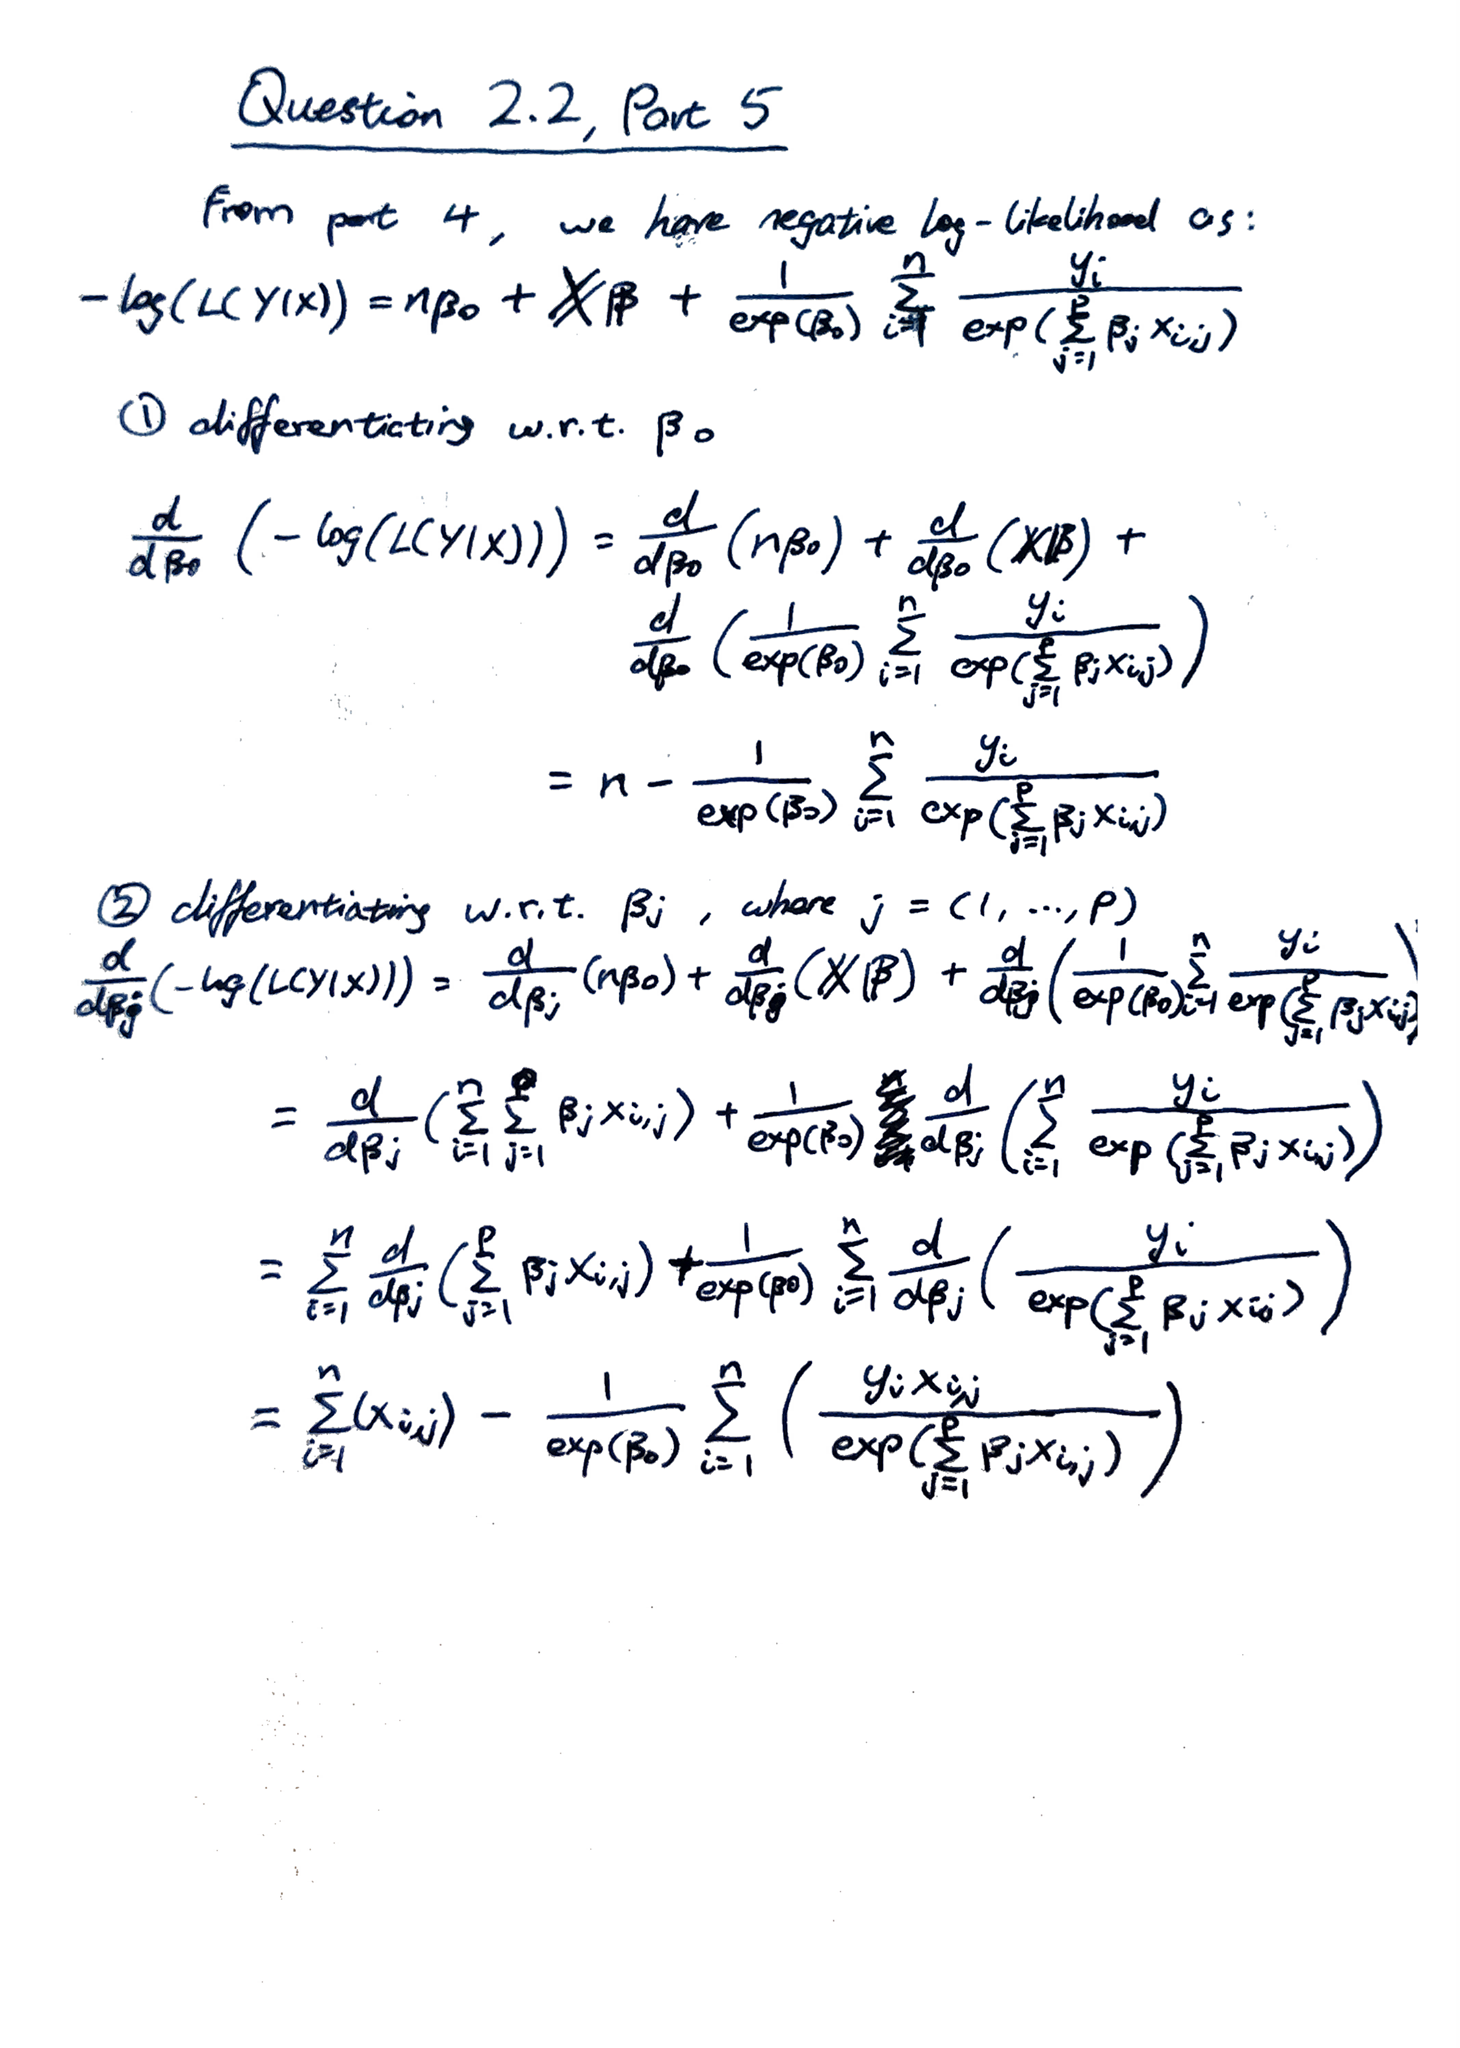 Question 2.2, Part 5
From part 4, we have negative log-likelihood as:
-log(L(Y|X)) = nβ₀ + 𝕏𝔹 + 1/exp(β₀) Σ_{i=1}^{n} y_i/exp(Σ_{j=1}^{p} β_j x_{i,j})
① differentiating w.r.t. β₀
d/dβ₀ (-log(L(Y|X))) = d/dβ₀ (nβ₀) + d/dβ₀ (𝕏𝔹) +
d/dβ₀ (1/exp(β₀) Σ_{i=1}^{n} y_i/exp(Σ_{j=1}^{p} β_j x_{i,j}))
= n - 1/exp(β₀) Σ_{i=1}^{n} y_i/exp(Σ_{j=1}^{p} β_j x_{i,j})
② differentiating w.r.t. β_j, where j = (1, ..., p)
d/dβ_j (-log(L(Y|X))) = d/dβ_j (nβ₀) + d/dβ_j (𝕏𝔹) + d/dβ_j (1/exp(β₀) Σ_{i=1}^{n} y_i/exp(Σ_{j=1}^{p} β_j x_{i,j}))
= d/dβ_j (Σ_{i=1}^{n} Σ_{j=1}^{p} β_j x_{i,j}) + 1/exp(β₀) d/dβ_j (Σ_{i=1}^{n} y_i/exp(Σ_{j=1}^{p} β_j x_{i,j}))
= Σ_{i=1}^{n} d/dβ_j (Σ_{j=1}^{p} β_j x_{i,j}) + 1/exp(β₀) Σ_{i=1}^{n} d/dβ_j (y_i/exp(Σ_{j=1}^{p} β_j x_{i,j}))
= Σ_{i=1}^{n} (x_{i,j}) - 1/exp(β₀) Σ_{i=1}^{n} (y_i x_{i,j}/exp(Σ_{j=1}^{p} β_j x_{i,j}))